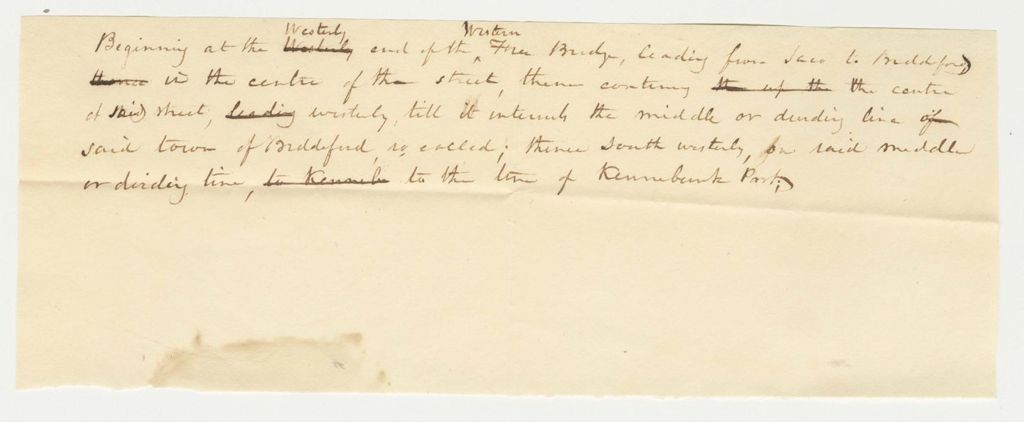 Westerly Western
Beginning at the Westerly end of the ^ Free Bridge, leading from Saco to Biddeford,
thence in the centre of the street, thence continuing up the the centre
of said street, leading westerly, till it intersects the middle or dividing line of
said town of Biddeford, so called; thence South westerly, on said middle
or dividing line, to Kennebu to the line of Kennebunk Port;